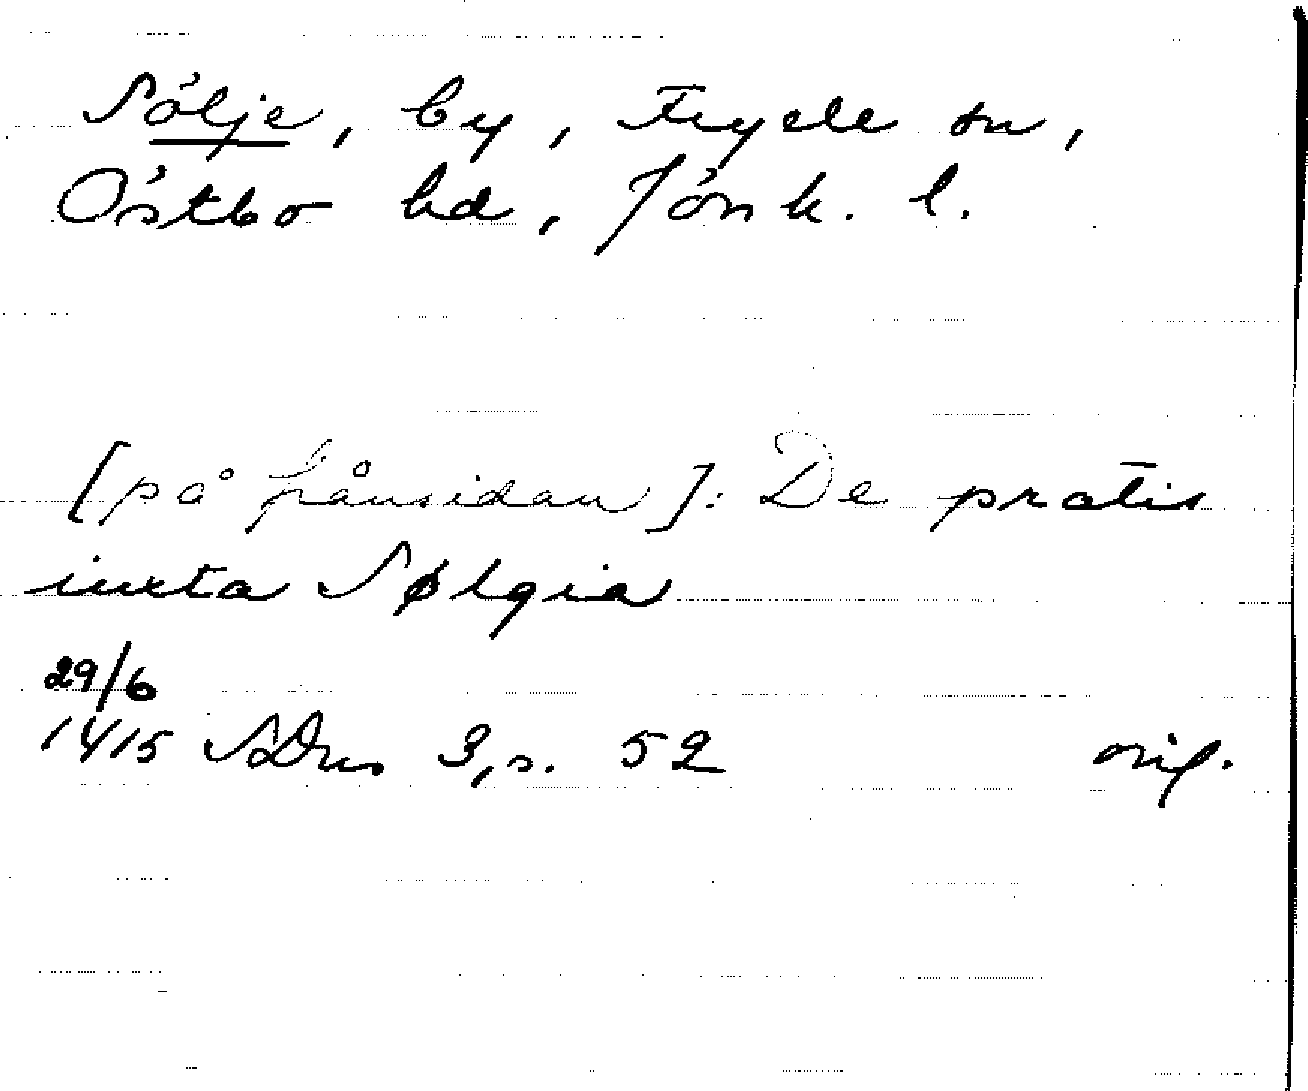 Sölje, by, Tryele sn,
Östbo hd, Jönk. l.
[på frånsidan]: De pratis
iuxta Sølgia
29/6
1415 SDns 3, s. 52 orig.